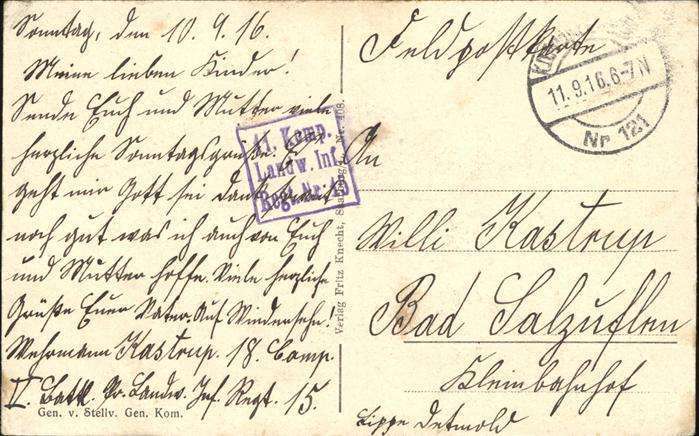 Sonntag, den 10.9.16.
Meine lieben Kinder!
Sende Euch und Mutter viele
herzliche Sonntagsgrüße. Es
geht mir Gott sei Dank
noch gut was ich auch von Euch
und Mutter hoffe. Viele herzliche
Grüße Euer Vater. Auf Wiedersehn!
Wehrmann Kastrup. 18. Comp.
IV. Batl. Pr. Landw. Inf. Regt. 15.
Gen. v. Stellv. Gen. Kom.
Komp.
Landw. Inf.
Regt. Nr. 15
Verlag Fritz Knecht,
Feldpostkarte
11.9.16.6-7N
Nr. 121
An
Willi Kastrup
Bad Salzuflen
Kleinbahnhof
Lippe Detmold